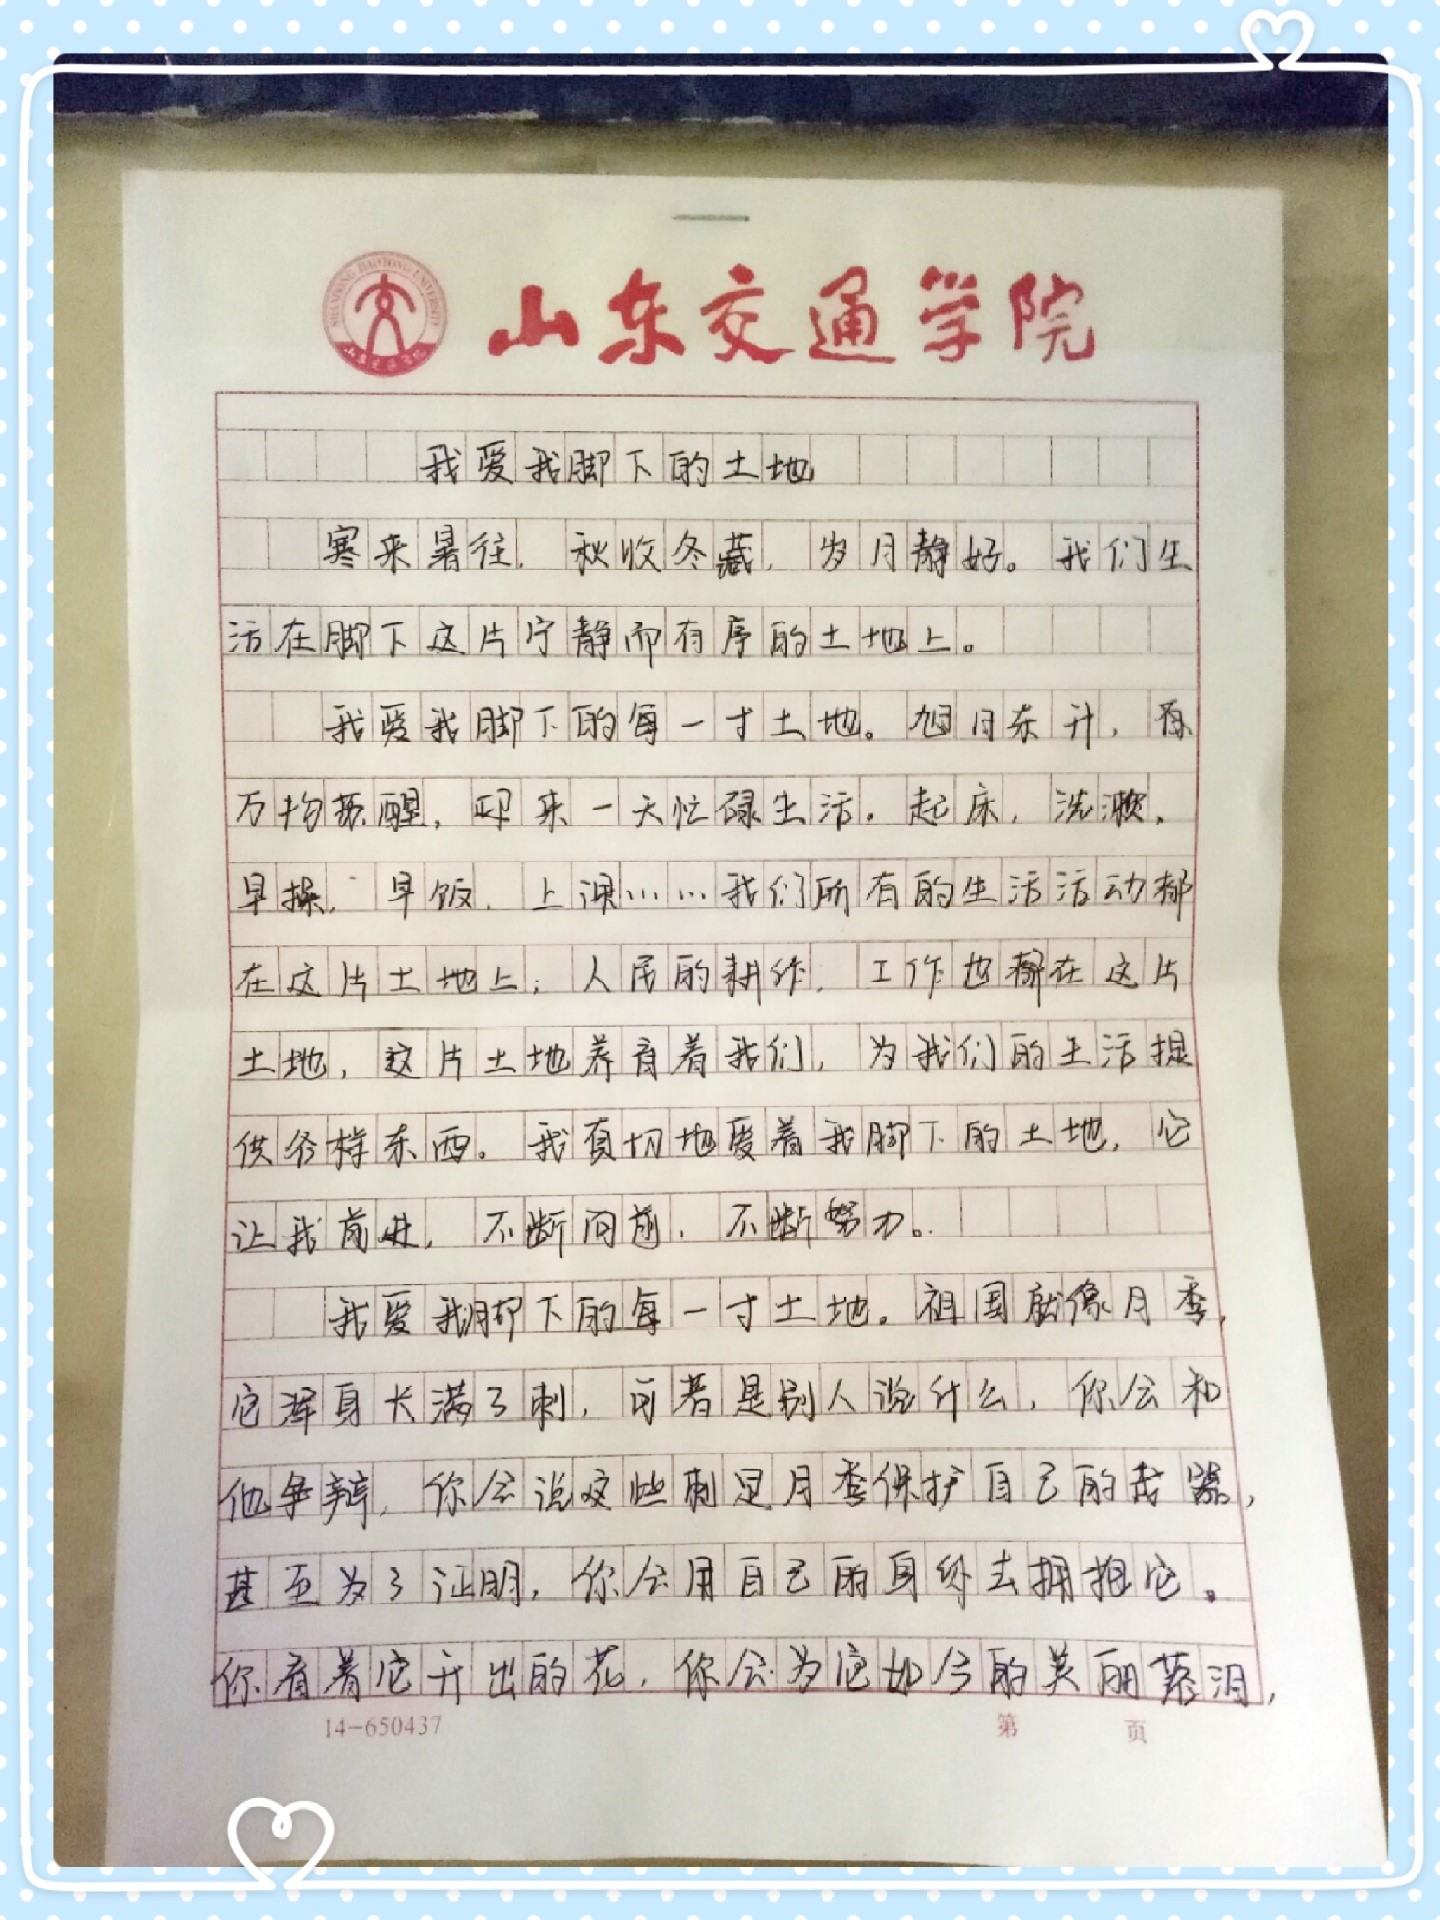 SHANDONG JIAOTONG UNIVERSITY
山东交通学院
山东交通学院
我爱我脚下的土地
寒来暑往，秋收冬藏，岁月静好。我们生
活在脚下这片宁静而有序的土地上。
我爱我脚下的每一寸土地。旭日东升，
万物苏醒，迎来一天忙碌生活。起床，洗漱，
早操，早饭，上课……我们所有的生活活动都
在这片土地上；人民的耕作，工作也都在这片
土地，这片土地养育着我们，为我们的生活提
供各样东西。我真切地爱着我脚下的土地，它
让我前进，不断向前，不断努力。
我爱我脚下的每一寸土地。祖国就像月季，
它浑身长满了刺，可若是别人说什么，你会和
他争辩，你会说这些刺是月季保护自己的武器，
甚至为了证明，你会用自己的身体去拥抱它。
你看着它开出的花，你会为它如今的美丽落泪，
14-650437
第 页